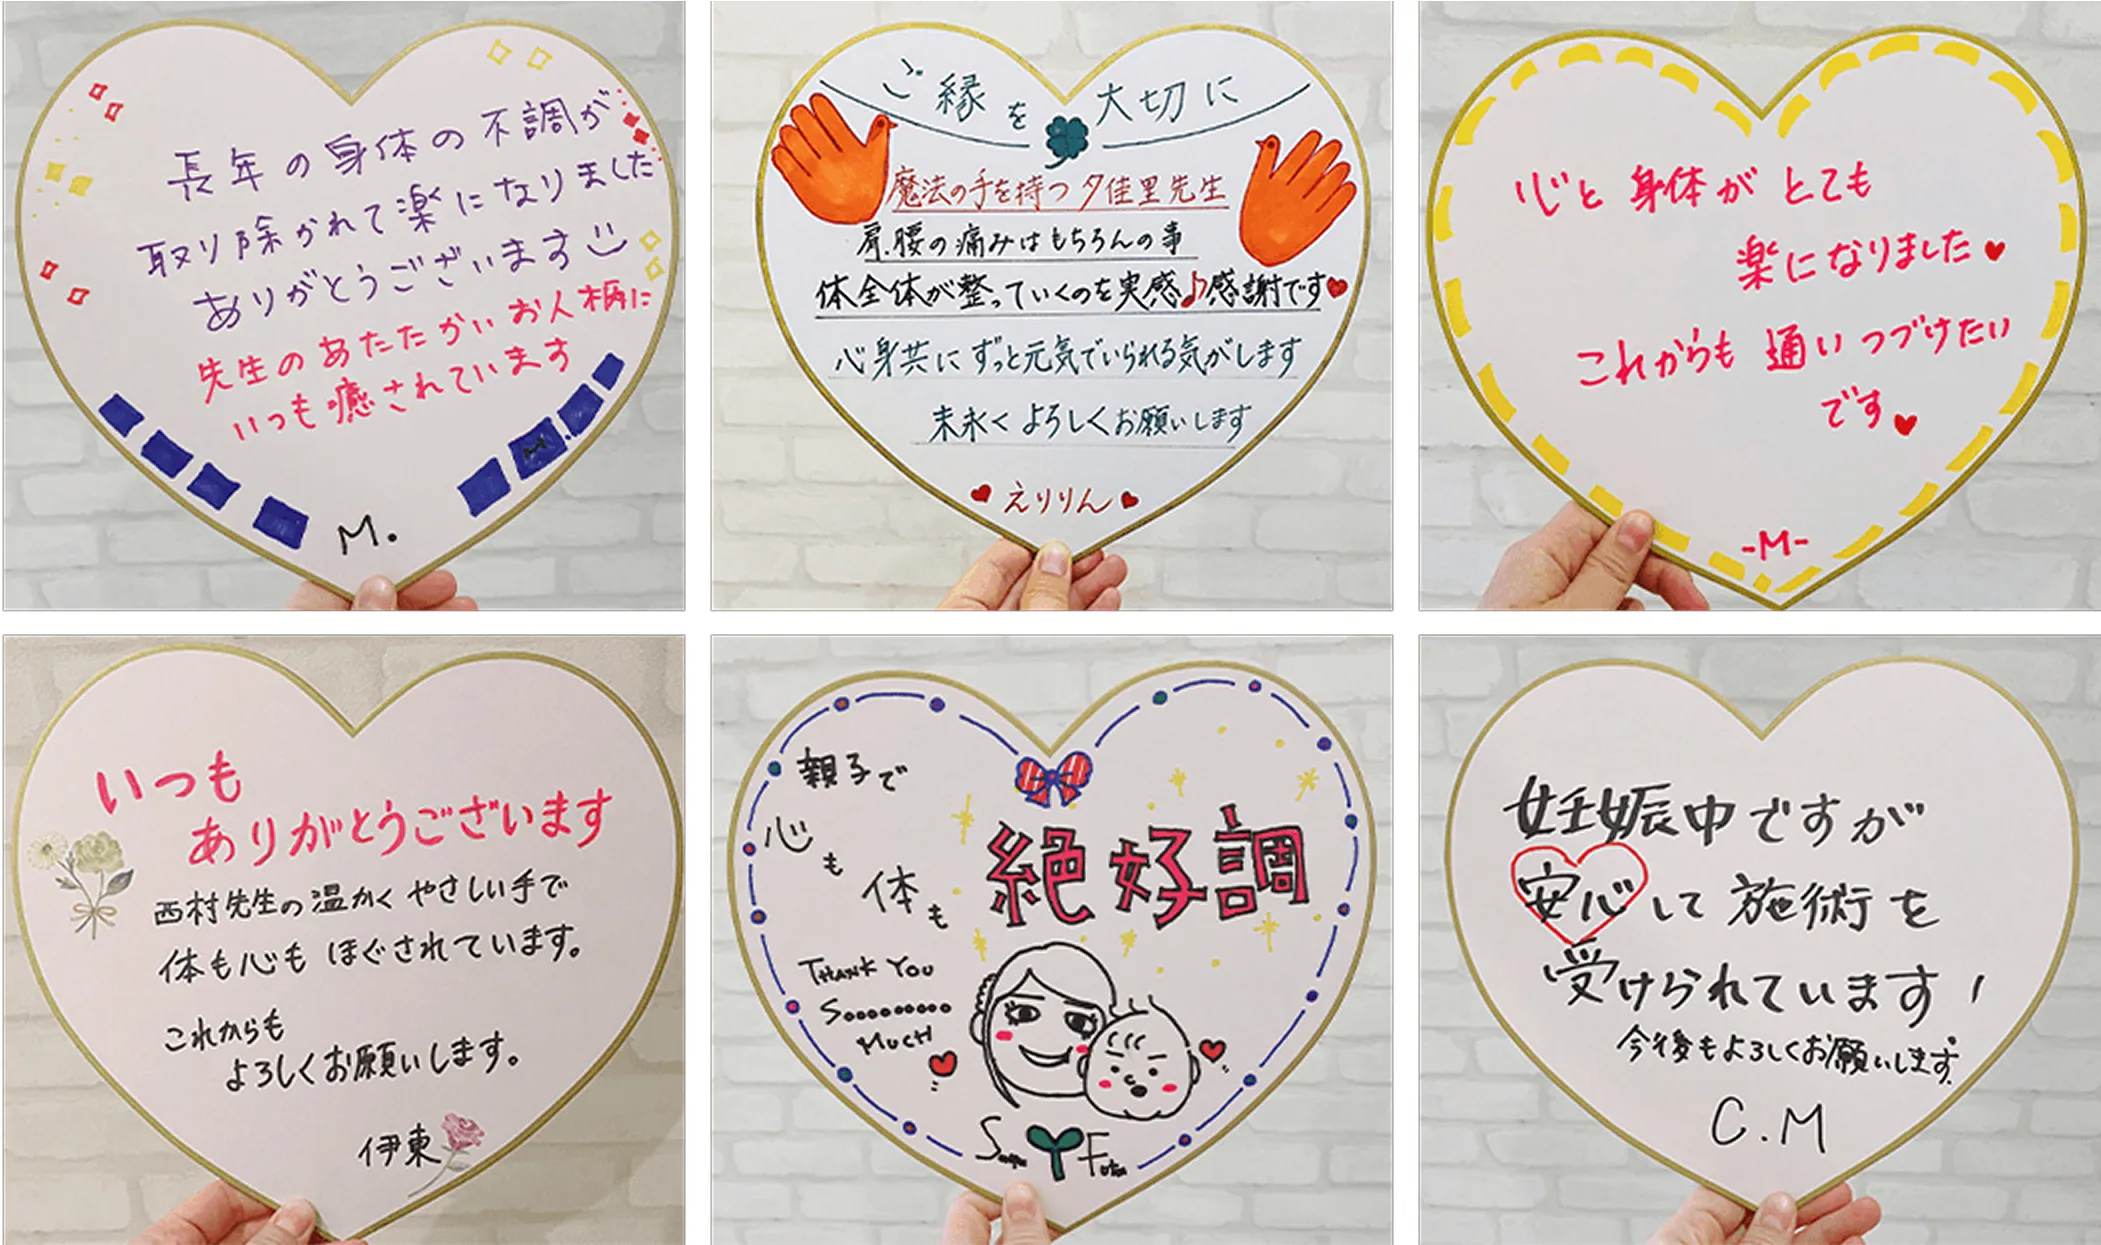 長年の身体の不調が
取り除かれて楽になりました
ありがとうございます
先生のあたたかいお人柄に
いつも癒されています
M.
ご縁を大切に
魔法の手を持つ夕佳里先生
肩、腰の痛みはもちろんの事
体全体が整っていくのを実感♪感謝です♥
心身共にずっと元気でいられる気がします
末永くよろしくお願いします
♥えりりん♥
心と身体がとても
楽になりました♥
これからも通いつづけたい
です♥
-M-
いつも
ありがとうございます
西村先生の温かくやさしい手で
体も心もほぐされています。
これからも
よろしくお願いします。
伊東
親子で
心も体も
絶好調
THANK YOU
S..........
MUCH
妊娠中ですが
安心して施術を
受けられています!
今後もよろしくお願いします。
C.M